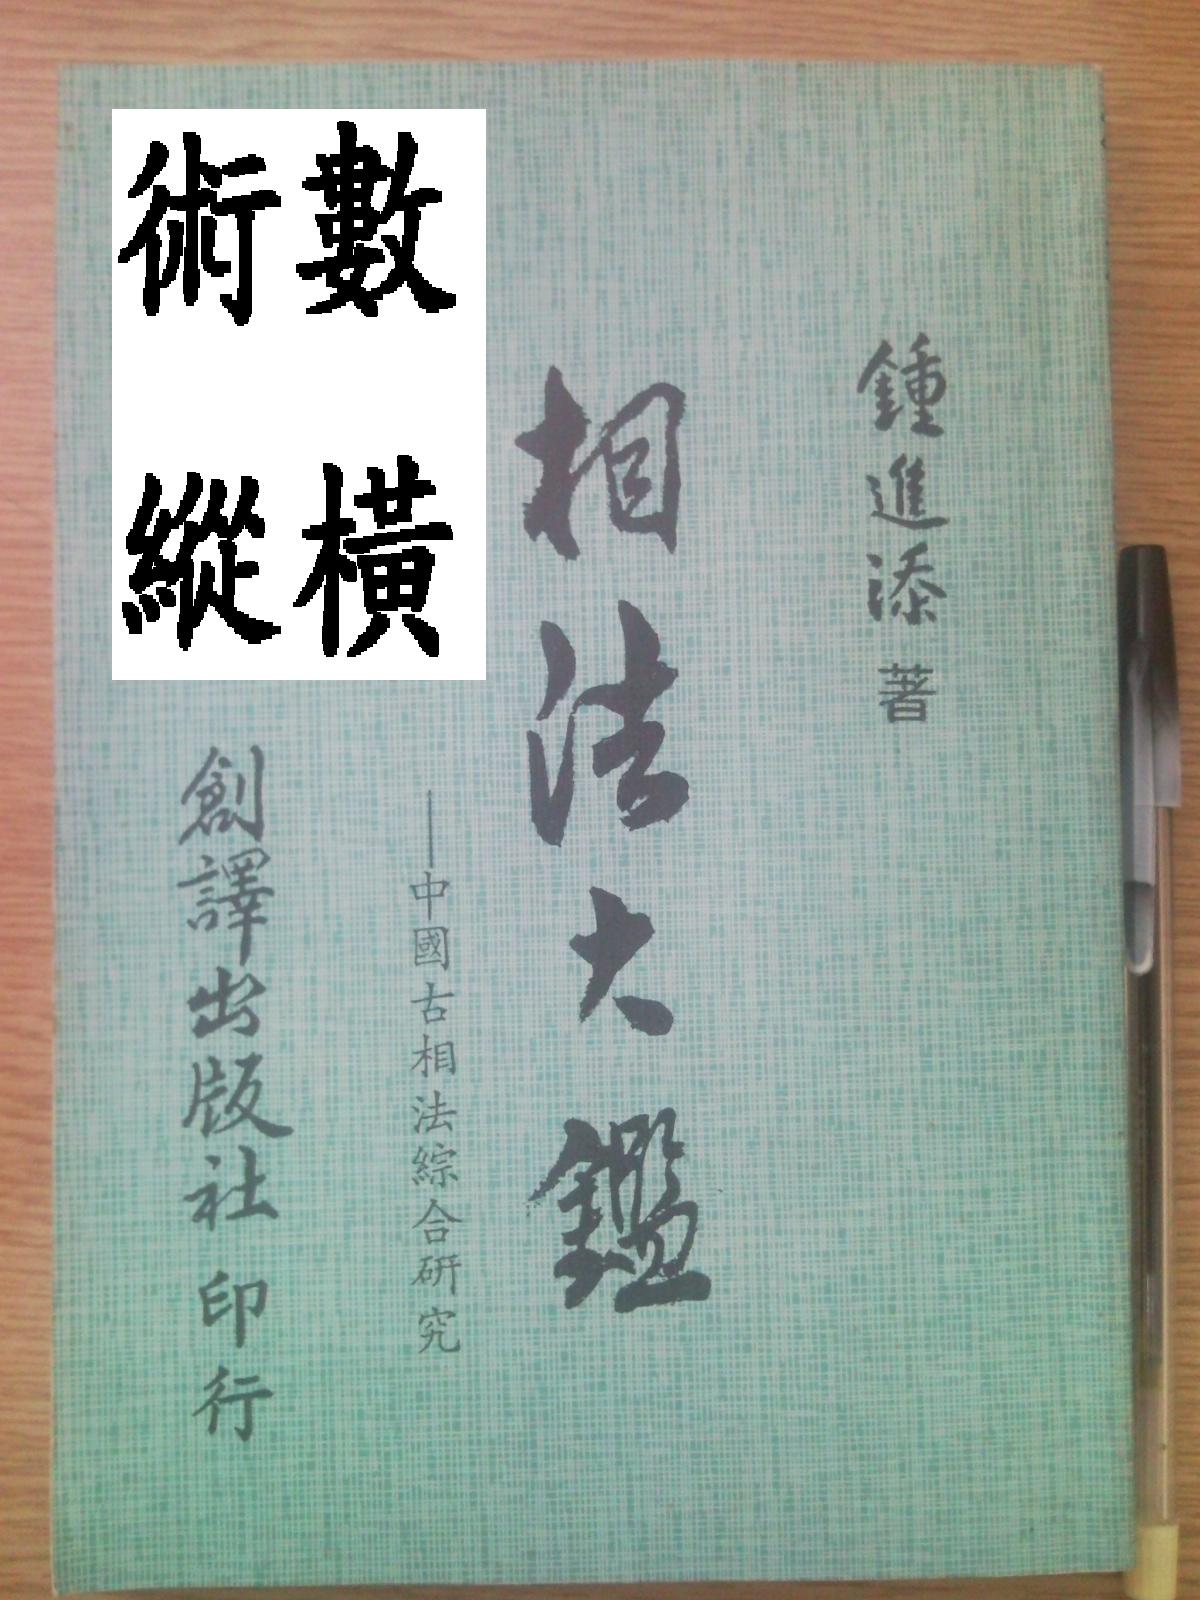 鍾進添 著
相法大鑑
──中國古相法綜合研究
創譯出版社 印行
數術
橫縱